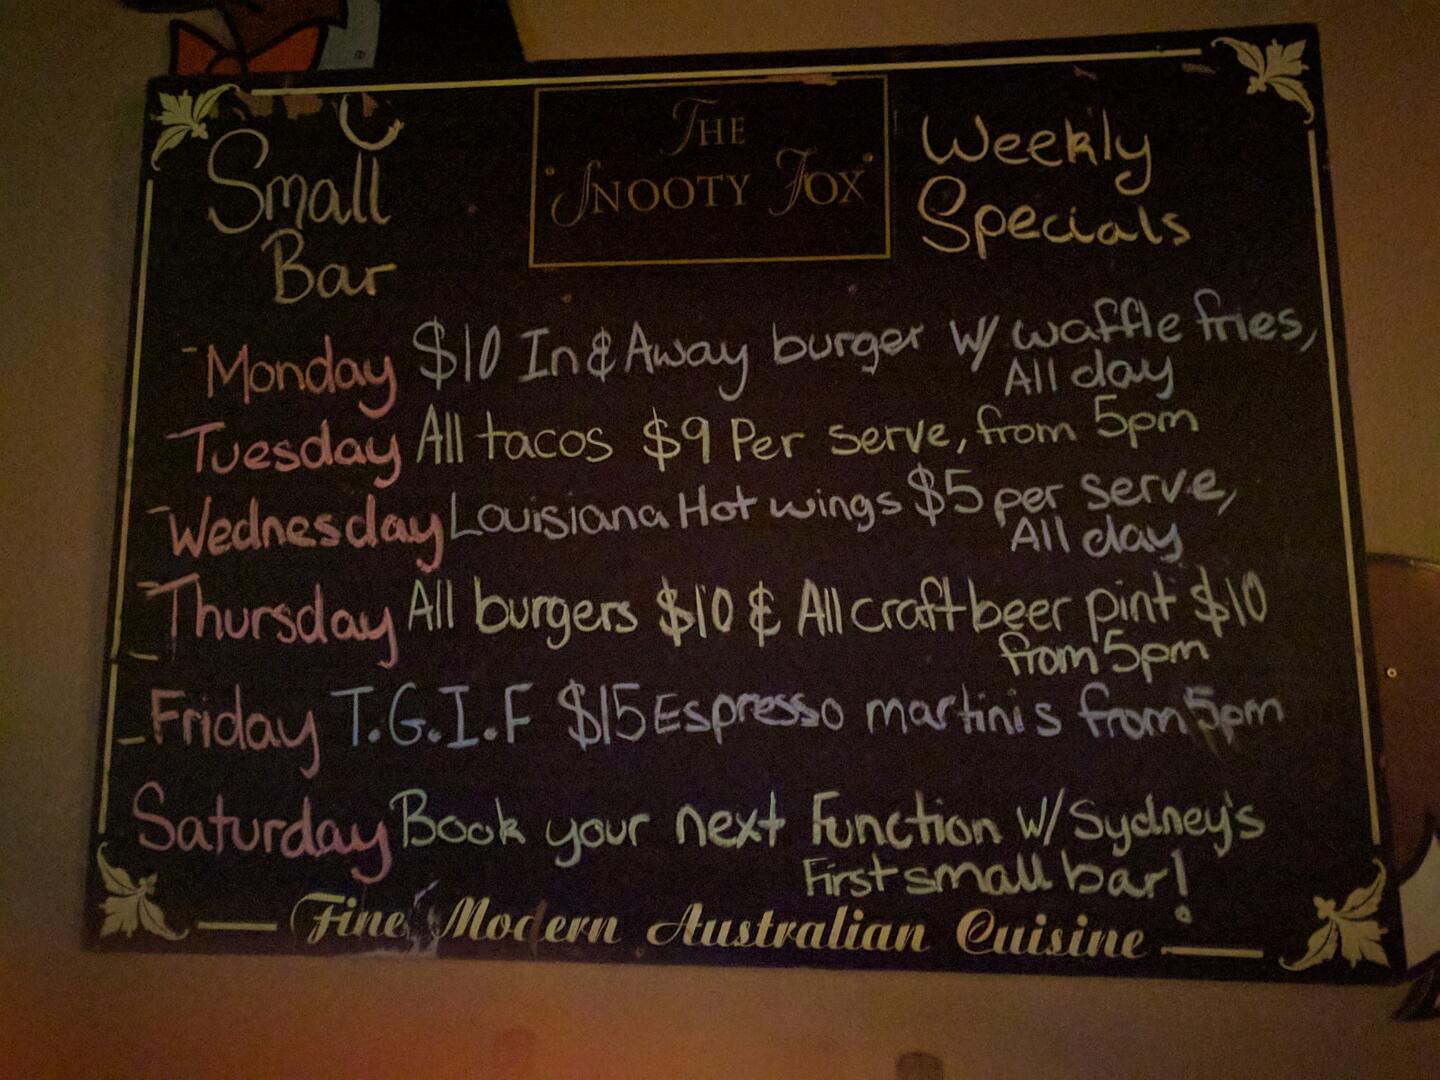 Small
Bar
THE
SNOOTY FOX
Weekly
Specials
Monday $10 In & Away burger w/ waffle fries,
All day
Tuesday All tacos $9 Per serve, from 5pm
Wednesday Louisiana Hot wings $5 per serve,
All day
Thursday All burgers $10 & All craft beer pint $10
from 5pm
Friday T.G.I.F $15 Espresso martinis from 5pm
Saturday Book your next Function w/ Sydney's
First small bar!
Fine Modern Australian Cuisine